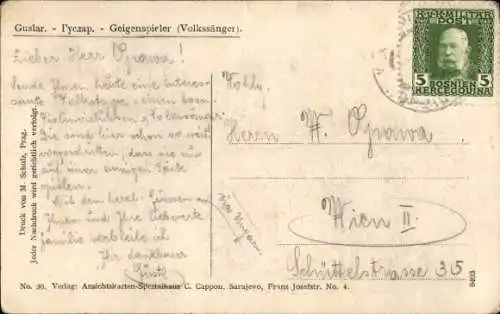 Guslar. - Гуслар. - Geigenspieler (Volkssänger).
K.u.K. MILITÄR
POST
5 5
BOSNIEN
HERCEGOVINA
Lieber Herr Oprawa!
Sende Ihnen heute eine interes-
sante Volkstype, einen bosn.
Violinvirtuosen u. Volkssänger.
Sie sind hier schon so weit
vorgeschritten, dass sie nur
auf einer einzigen Saite
spielen.
Mit den herzl. Grüssen an
Ihnen und Ihre liebwerte
Familie verbleibe ich
Ihr dankbarer
Herrn
Oprawa
Wien II.
Schüttelstrasse 35
Druck von M. Schulz, Prag.
Jeder Nachdruck wird gerichtlich verfolgt.
No. 30. Verlag: Ansichtskarten-Spezialhaus C. Cappon, Sarajevo, Franz Josefstr. No. 4.